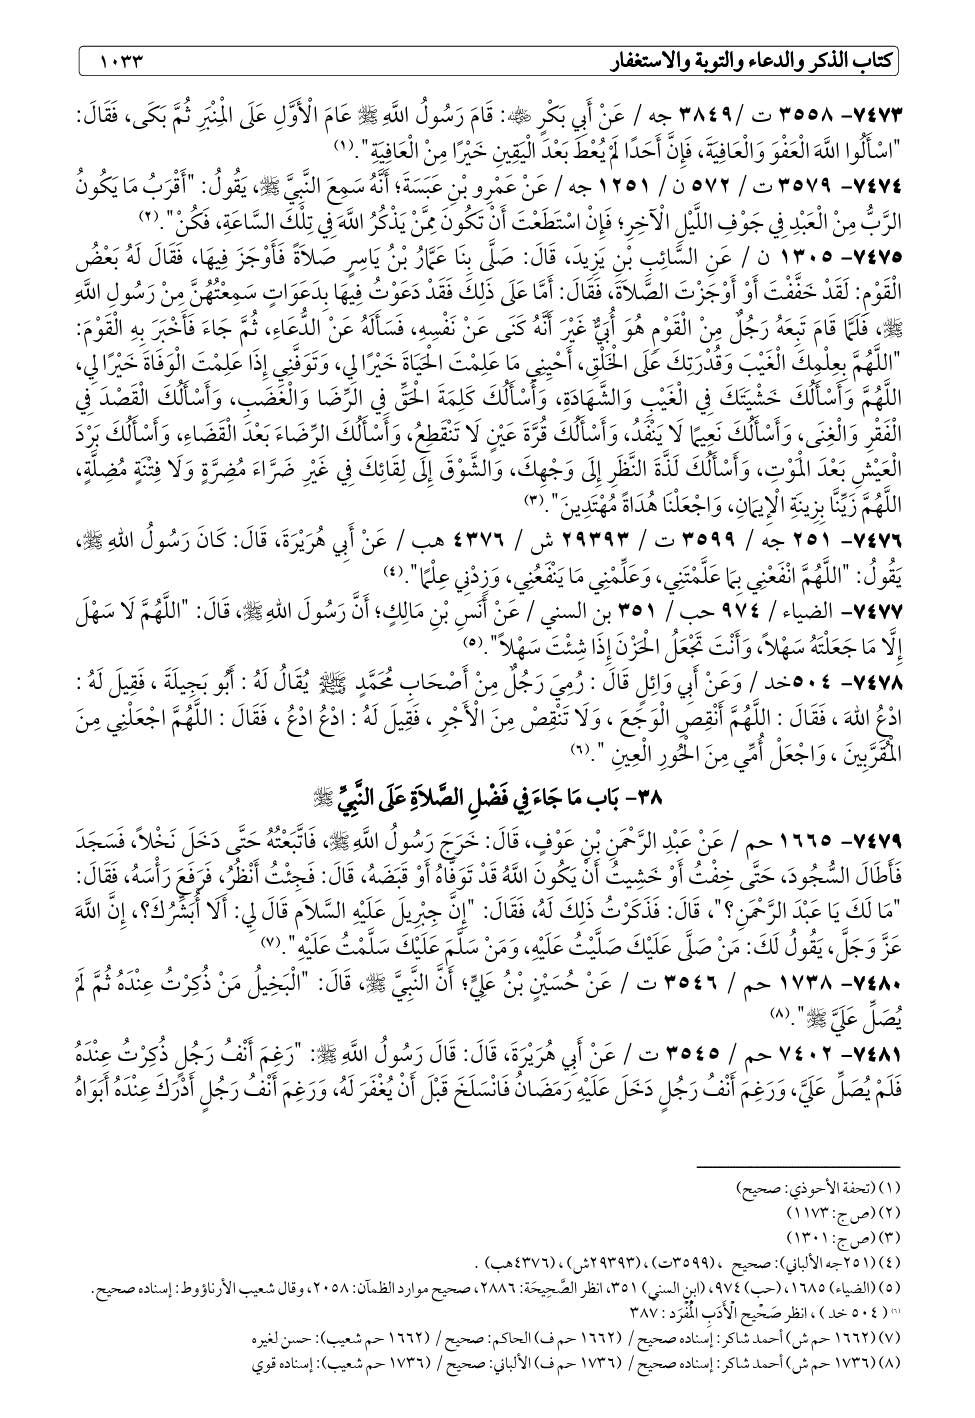 كتاب الذكر والدعاء والتوبة والاستغفار ١٠٣٣
٧٤٧٣- ٣٥٥٨ ت / ٣٨٤٩ جه / عَنْ أَبِي بَكْرٍ ﷺ: قَامَ رَسُولُ اللَّهِ ﷺ عَامَ الْأَوَّلِ عَلَى الْمِنْبَرِ ثُمَّ بَكَى، فَقَالَ:
"اسْأَلُوا اللَّهَ الْعَفْوَ وَالْعَافِيَةَ، فَإِنَّ أَحَدًا لَمْ يُعْطَ بَعْدَ الْيَقِينِ خَيْرًا مِنْ الْعَافِيَةِ".(١)
٧٤٧٤- ٣٥٧٩ ت / ٥٧٢ ن / ١٢٥١ جه / عَنْ عَمْرِو بْنِ عَبَسَةَ؛ أَنَّهُ سَمِعَ النَّبِيَّ ﷺ، يَقُولُ: "أَقْرَبُ مَا يَكُونُ
الرَّبُّ مِنْ الْعَبْدِ فِي جَوْفِ اللَّيْلِ الْآخِرِ؛ فَإِنْ اسْتَطَعْتَ أَنْ تَكُونَ مِمَّنْ يَذْكُرُ اللَّهَ فِي تِلْكَ السَّاعَةِ، فَكُنْ".(٢)
٧٤٧٥- ١٣٠٥ ن / عَنِ السَّائِبِ بْنِ يَزِيدَ، قَالَ: صَلَّى بِنَا عَمَّارُ بْنُ يَاسِرٍ صَلَاةً فَأَوْجَزَ فِيهَا، فَقَالَ لَهُ بَعْضُ
الْقَوْمِ: لَقَدْ خَفَّفْتَ أَوْ أَوْجَزْتَ الصَّلَاةَ، فَقَالَ: أَمَّا عَلَى ذَلِكَ فَقَدْ دَعَوْتُ فِيهَا بِدَعَوَاتٍ سَمِعْتُهُنَّ مِنْ رَسُولِ اللَّهِ
ﷺ، فَلَمَّا قَامَ تَبِعَهُ رَجُلٌ مِنْ الْقَوْمِ هُوَ أُبَيٌّ غَيْرَ أَنَّهُ كَنَى عَنْ نَفْسِهِ، فَسَأَلَهُ عَنْ الدُّعَاءِ، ثُمَّ جَاءَ فَأَخْبَرَ بِهِ الْقَوْمَ:
"اللَّهُمَّ بِعِلْمِكَ الْغَيْبَ وَقُدْرَتِكَ عَلَى الْخَلْقِ، أَحْيِنِي مَا عَلِمْتَ الْحَيَاةَ خَيْرًا لِي، وَتَوَفَّنِي إِذَا عَلِمْتَ الْوَفَاةَ خَيْرًا لِي،
اللَّهُمَّ وَأَسْأَلُكَ خَشْيَتَكَ فِي الْغَيْبِ وَالشَّهَادَةِ، وَأَسْأَلُكَ كَلِمَةَ الْحَقِّ فِي الرِّضَا وَالْغَضَبِ، وَأَسْأَلُكَ الْقَصْدَ فِي
الْفَقْرِ وَالْغِنَى، وَأَسْأَلُكَ نَعِيمًا لَا يَنْفَدُ، وَأَسْأَلُكَ قُرَّةَ عَيْنٍ لَا تَنْقَطِعُ، وَأَسْأَلُكَ الرِّضَاءَ بَعْدَ الْقَضَاءِ، وَأَسْأَلُكَ بَرْدَ
الْعَيْشِ بَعْدَ الْمَوْتِ، وَأَسْأَلُكَ لَذَّةَ النَّظَرِ إِلَى وَجْهِكَ، وَالشَّوْقَ إِلَى لِقَائِكَ فِي غَيْرِ ضَرَّاءَ مُضِرَّةٍ وَلَا فِتْنَةٍ مُضِلَّةٍ،
اللَّهُمَّ زَيِّنَّا بِزِينَةِ الْإِيمَانِ، وَاجْعَلْنَا هُدَاةً مُهْتَدِينَ".(٣)
٧٤٧٦- ٢٥١ جه / ٣٥٩٩ ت / ٢٩٣٩٣ ش / ٤٣٧٦ هب / عَنْ أَبِي هُرَيْرَةَ، قَالَ: كَانَ رَسُولُ اللهِ ﷺ،
يَقُولُ: "اللَّهُمَّ انْفَعْنِي بِمَا عَلَّمْتَنِي، وَعَلِّمْنِي مَا يَنْفَعُنِي، وَزِدْنِي عِلْمًا".(٤)
٧٤٧٧- الضياء / ٩٧٤ حب / ٣٥١ بن السني / عَنْ أَنَسِ بْنِ مَالِكٍ؛ أَنَّ رَسُولَ اللهِ ﷺ، قَالَ: "اللَّهُمَّ لَا سَهْلَ
إِلَّا مَا جَعَلْتَهُ سَهْلاً، وَأَنْتَ تَجْعَلُ الْحَزْنَ إِذَا شِئْتَ سَهْلاً".(٥)
٧٤٧٨- ٥٠٤خد / وَعَنْ أَبِي وَائِلٍ قَالَ : رُمِيَ رَجُلٌ مِنْ أَصْحَابِ مُحَمَّدٍ ﷺ يُقَالُ لَهُ : أَبُو بَجِيلَةَ ، فَقِيلَ لَهُ :
ادْعُ اللهَ ، فَقَالَ : اللَّهُمَّ أَنْقِصِ الْوَجَعَ ، وَلَا تَنْقِصْ مِنَ الْأَجْرِ ، فَقِيلَ لَهُ : ادْعُ ادْعُ ، فَقَالَ : اللَّهُمَّ اجْعَلْنِي مِنَ
الْمُقَرَّبِينَ ، وَاجْعَلْ أُمِّي مِنَ الْحُورِ الْعِينِ ".(٦)
٣٨- بَاب مَا جَاءَ فِي فَضْلِ الصَّلاَةِ عَلَى النَّبِيِّ ﷺ
٧٤٧٩- ١٦٦٥ حم / عَنْ عَبْدِ الرَّحْمَنِ بْنِ عَوْفٍ، قَالَ: خَرَجَ رَسُولُ اللَّهِ ﷺ، فَاتَّبَعْتُهُ حَتَّى دَخَلَ نَخْلاً، فَسَجَدَ
فَأَطَالَ السُّجُودَ، حَتَّى خِفْتُ أَوْ خَشِيتُ أَنْ يَكُونَ اللَّهُ قَدْ تَوَفَّاهُ أَوْ قَبَضَهُ، قَالَ: فَجِئْتُ أَنْظُرُ، فَرَفَعَ رَأْسَهُ، فَقَالَ:
"مَا لَكَ يَا عَبْدَ الرَّحْمَنِ؟"، قَالَ: فَذَكَرْتُ ذَلِكَ لَهُ، فَقَالَ: "إِنَّ جِبْرِيلَ عَلَيْهِ السَّلاَم قَالَ لِي: أَلَا أُبَشِّرُكَ؟، إِنَّ اللَّهَ
عَزَّ وَجَلَّ، يَقُولُ لَكَ: مَنْ صَلَّى عَلَيْكَ صَلَّيْتُ عَلَيْهِ، وَمَنْ سَلَّمَ عَلَيْكَ سَلَّمْتُ عَلَيْهِ".(٧)
٧٤٨٠- ١٧٣٨ حم / ٣٥٤٦ ت / عَنْ حُسَيْنِ بْنُ عَلِيٍّ؛ أَنَّ النَّبِيَّ ﷺ، قَالَ: "الْبَخِيلُ مَنْ ذُكِرْتُ عِنْدَهُ ثُمَّ لَمْ
يُصَلِّ عَلَيَّ ﷺ".(٨)
٧٤٨١- ٧٤٠٢ حم / ٣٥٤٥ ت / عَنْ أَبِي هُرَيْرَةَ، قَالَ: قَالَ رَسُولُ اللَّهِ ﷺ: "رَغِمَ أَنْفُ رَجُلٍ ذُكِرْتُ عِنْدَهُ
فَلَمْ يُصَلِّ عَلَيَّ، وَرَغِمَ أَنْفُ رَجُلٍ دَخَلَ عَلَيْهِ رَمَضَانُ فَانْسَلَخَ قَبْلَ أَنْ يُغْفَرَ لَهُ، وَرَغِمَ أَنْفُ رَجُلٍ أَدْرَكَ عِنْدَهُ أَبَوَاهُ
(١) (تحفة الأحوذي: صحيح)
(٢) (ص ج: ١١٧٣)
(٣) (ص ج: ١٣٠١)
(٤) (٢٥١جه الألباني): صحيح ، (٣٥٩٩ت) ، (٢٩٣٩٣ش) ، (٤٣٧٦هب) .
(٥) (الضياء) ١٦٨٥، (حب) ٩٧٤، (ابن السني) ٣٥١، انظر الصَّحِيحَة: ٢٨٨٦، صحيح موارد الظمآن: ٢٠٥٨، وقال شعيب الأرناؤوط: إسناده صحيح.
(٦) ( ٥٠٤ خد ) ، انظر صَحْيح الْأَدَبِ الْمُفْرَد : ٣٨٧
(٧) (١٦٦٢ حم ش) أحمد شاكر: إسناده صحيح / (١٦٦٢ حم ف) الحاكم: صحيح / (١٦٦٢ حم شعيب): حسن لغيره
(٨) (١٧٣٦ حم ش) أحمد شاكر: إسناده صحيح / (١٧٣٦ حم ف) الألباني: صحيح / (١٧٣٦ حم شعيب): إسناده قوي